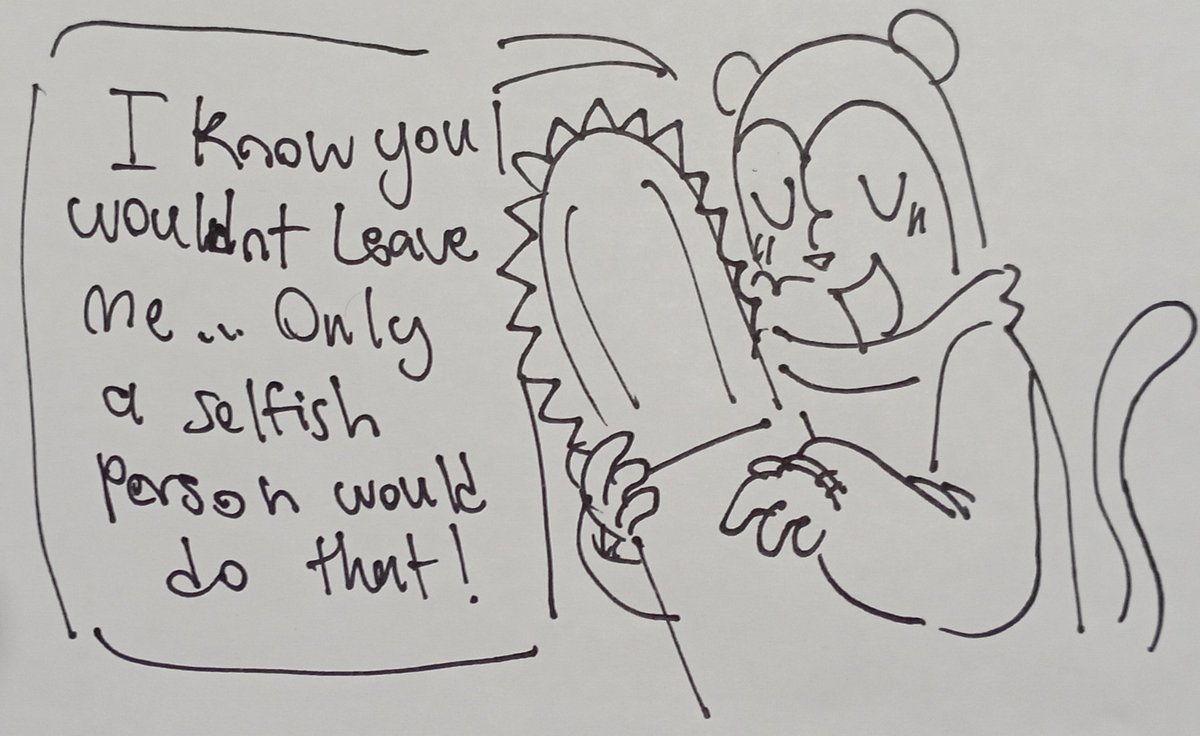 I know you
wouldnt leave
me... Only
a selfish
person would
do that!